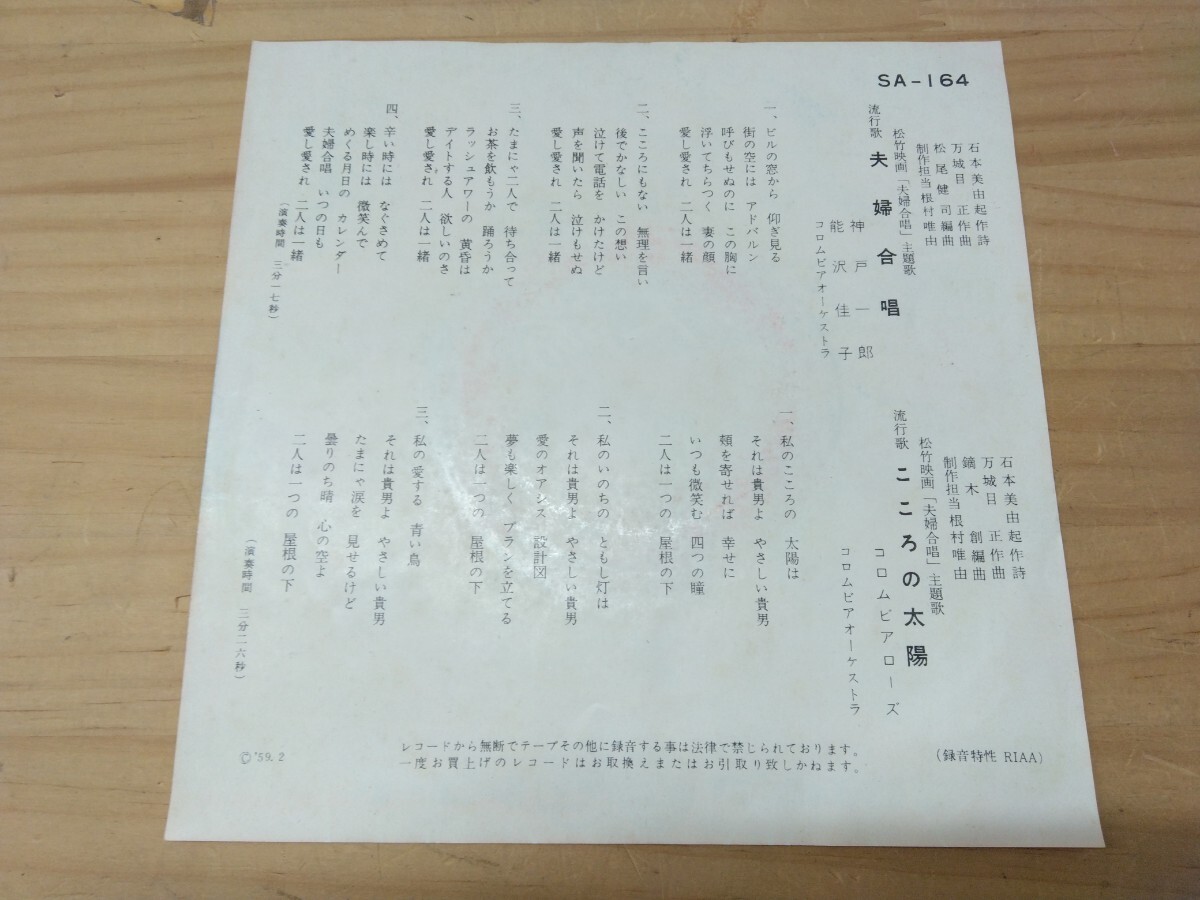 SA-164
石本美由起作詩
万城目 正作曲
松尾健司編曲
制作担当 根村唯由
松竹映画「夫婦合唱」主題歌
流行歌 夫婦合唱
神戸一郎
能沢佳子
コロムビアオーケストラ
一、ビルの窓から 仰ぎ見る
街の空には アドバルン
呼びもせぬのに この胸に
浮いてちらつく 妻の顔
愛し愛され 二人は一緒
二、こころにもない 無理を言い
後でかなしい この想い
泣けて電話を かけたけど
声を聞いたら 泣けもせぬ
愛し愛され 二人は一緒
三、たまにゃ二人で 待ち合って
お茶を飲もうか 踊ろうか
ラッシュアワーの 黄昏は
デイトする人 欲しいのさ
愛し愛され 二人は一緒
四、辛い時には なぐさめて
楽し時には 微笑んで
めくる月日の カレンダー
夫婦合唱 いつの日も
愛し愛され 二人は一緒
(演奏時間 三分一七秒)
石本美由起作詩
万城目 正作曲
鏑木 創編曲
制作担当 根村唯由
松竹映画「夫婦合唱」主題歌
流行歌 こころの太陽
コロムビアローズ
コロムビアオーケストラ
一、私のこころの 太陽は
それは貴男よ やさしい貴男
頬を寄せれば 幸せに
いつも微笑む 四つの瞳
二人は一つの 屋根の下
二、私のいのちの ともし灯は
それは貴男よ やさしい貴男
愛のオアシス 設計図
夢も楽しく プランを立てる
二人は一つの 屋根の下
三、私の愛する 青い鳥
それは貴男よ やさしい貴男
たまにゃ涙を 見せるけど
曇りのち晴 心の空よ
二人は一つの 屋根の下
(演奏時間 三分二六秒)
レコードから無断でテープその他に録音する事は法律で禁じられております。
一度お買上げのレコードはお取換えまたはお引取り致しかねます。
(録音特性 RIAA)
©'59.2